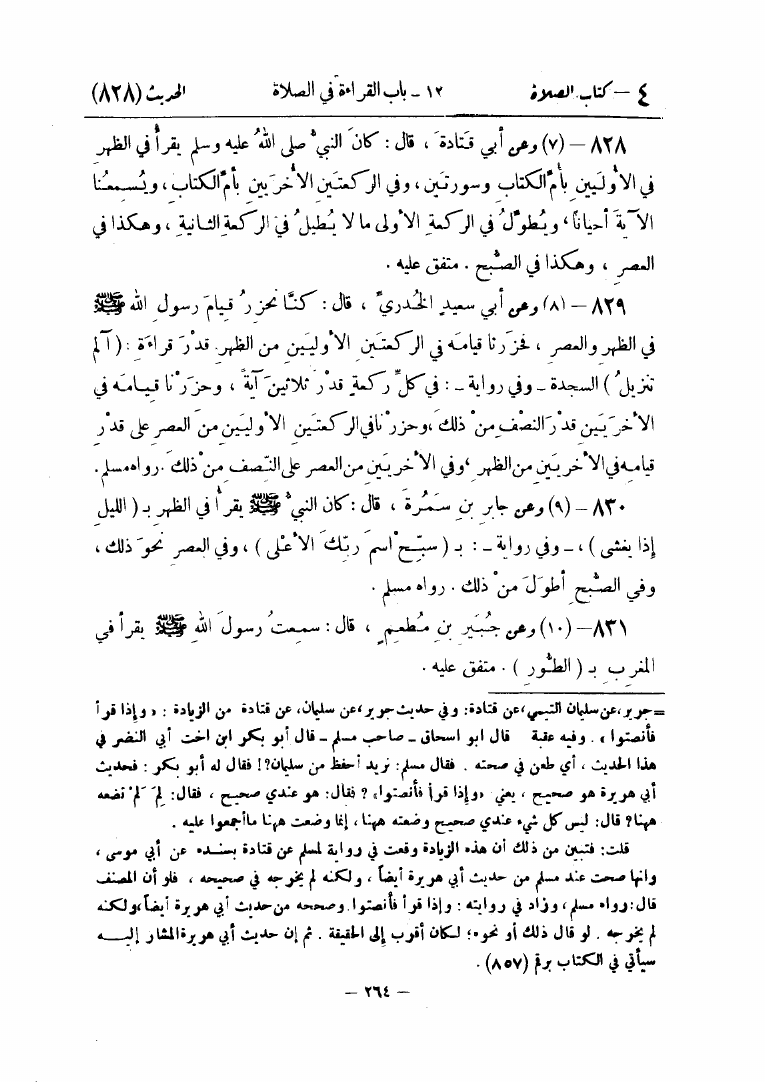 ٤ – كتاب الصلاة ١٢ – باب القراءة في الصلاة الحديث (٨٢٨)
٨٢٨ – (٧) وعن أبي قَتادةَ ، قال : كانَ النبيُّ صلى اللهُ عليه وسلم يقرأُ في الظهرِ
في الأُوليَيْنِ بأُمِّ الكتابِ وسورتَيْنِ ، وفي الركعتَيْنِ الأُخرَيَيْنِ بأُمِّ الكتابِ ، ويُسمِعُنا
الآيةَ أحياناً ، ويُطوِّلُ في الركعةِ الأولى ما لا يُطيلُ في الركعةِ الثانيةِ ، وهكذا في
العصرِ ، وهكذا في الصُّبحِ . متفق عليه .
٨٢٩ – (٨) وعن أبي سعيدٍ الخُدريِّ ، قال : كنَّا نحزِرُ قيامَ رسولِ الله ﷺ
في الظهرِ والعصرِ ، فحَزَرْنا قيامَه في الركعتَيْنِ الأُوليَيْنِ من الظهرِ قدْرَ قراءةِ : ( آلم
تنزيلُ ) السجدة – وفي رواية – : في كلِّ ركعةٍ قدْرَ ثلاثينَ آيةً ، وحزَرْنا قيامَه في
الأُخرَيَيْنِ قدْرَ النصْفِ منْ ذلكَ ، وحزرْنا في الركعتَيْنِ الأُوليَيْنِ منَ العصرِ على قدْرِ
قيامِه في الأُخرَيَيْنِ من الظهرِ ، وفي الأُخرَيَيْنِ من العصرِ على النّصفِ منْ ذلكَ . رواه مسلم .
٨٣٠ – (٩) وعن جابرِ بنِ سَمُرةَ ، قال : كان النبيُّ ﷺ يقرأُ في الظهرِ بـ ( الليلِ
إذا يغشى ) ، – وفي روايةٍ – : بـ ( سبِّحِ اسمَ ربِّكَ الأعْلى ) ، وفي العصرِ نحوَ ذلك ،
وفي الصُّبحِ أطولَ منْ ذلكَ . رواه مسلم .
٨٣١ – (١٠) وعن جُبَيرِ بنِ مُطعِمٍ ، قال : سمِعتُ رسولَ اللهِ ﷺ يقرأُ في
المغرِبِ بـ ( الطُّورِ ) . متفق عليه .
= جرير ، عن سليمان التيمي ، عن قتادة : وفي حديث جرير ، عن سليمان ، عن قتادة من الزيادة : « وإذا قرأ
فأنصتوا » . وفيه عقبة قال ابو اسحاق – صاحب مسلم – قال أبو بكر ابن اخت أبي النضر في
هذا الحديث ، أي طعن في صحته . فقال مسلم : تريد أحفظ من سليمان ؟! فقال له أبو بكر : فحديث
أبي هريرة هو صحيح ، يعني «وإذا قرأ فأنصتوا» ؟ فقال : هو عندي صحيح ، فقال : لِمَ لَمْ تضعه
ههنا ؟ قال : ليس كل شيء عندي صحيح وضعته ههنا ، إنما وضعت ههنا ما أجمعوا عليه .
قلت : فتبين من ذلك أن هذه الزيادة وقعت في رواية لمسلم عن قتادة بسنده عن أبي موسى ،
وانها صحت عند مسلم من حديث أبي هريرة أيضاً ، ولكنه لم يخرجه في صحيحه ، فلو أن المصنف
قال : رواه مسلم ، وزاد في روايته : وإذا قرأ فأنصتوا . وصححه من حديث أبي هريرة أيضاً ، ولكنه
لم يخرجه . لو قال ذلك أو نحوه ؛ لكان أقرب إلى الحقيقة . ثم إن حديث أبي هريرة المشار إليه
سيأتي في الكتاب برقم (٨٥٧) .
– ٢٦٤ –